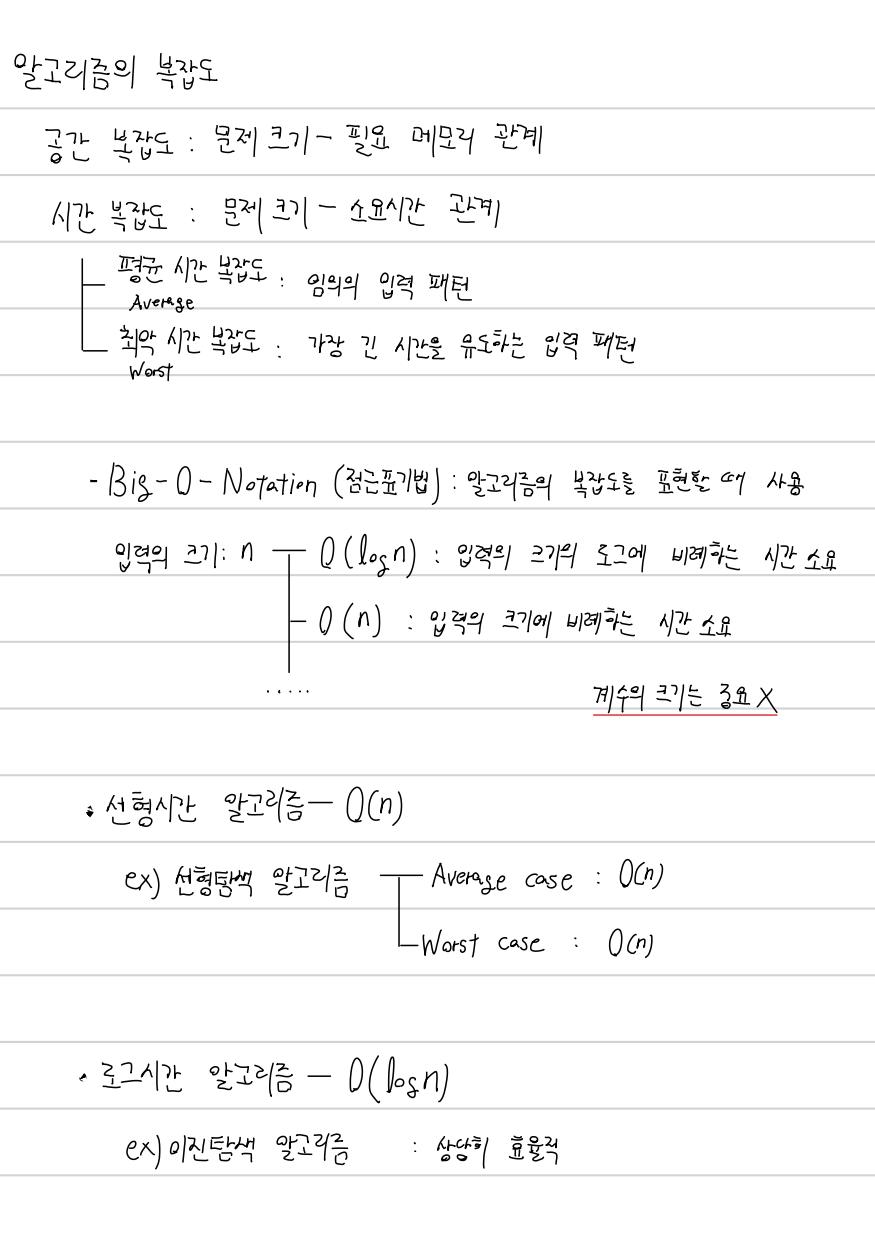 알고리즘의 복잡도
공간 복잡도 : 문제 크기 - 필요 메모리 관계
시간 복잡도 : 문제 크기 - 소요시간 관계
평균 시간 복잡도 : 임의의 입력 패턴
Average
최악 시간 복잡도 : 가장 긴 시간을 유도하는 입력 패턴
Worst
- Big-O-Notation (점근표기법) : 알고리즘의 복잡도를 표현할 때 사용
입력의 크기: n — O(logn) : 입력의 크기의 로그에 비례하는 시간 소요
O(n) : 입력의 크기에 비례하는 시간 소요
.....
계수의 크기는 중요 X
• 선형시간 알고리즘 — O(n)
ex) 선형탐색 알고리즘 — Average case : O(n)
Worst case : O(n)
• 로그시간 알고리즘 — O(logn)
ex) 이진탐색 알고리즘 : 상당히 효율적